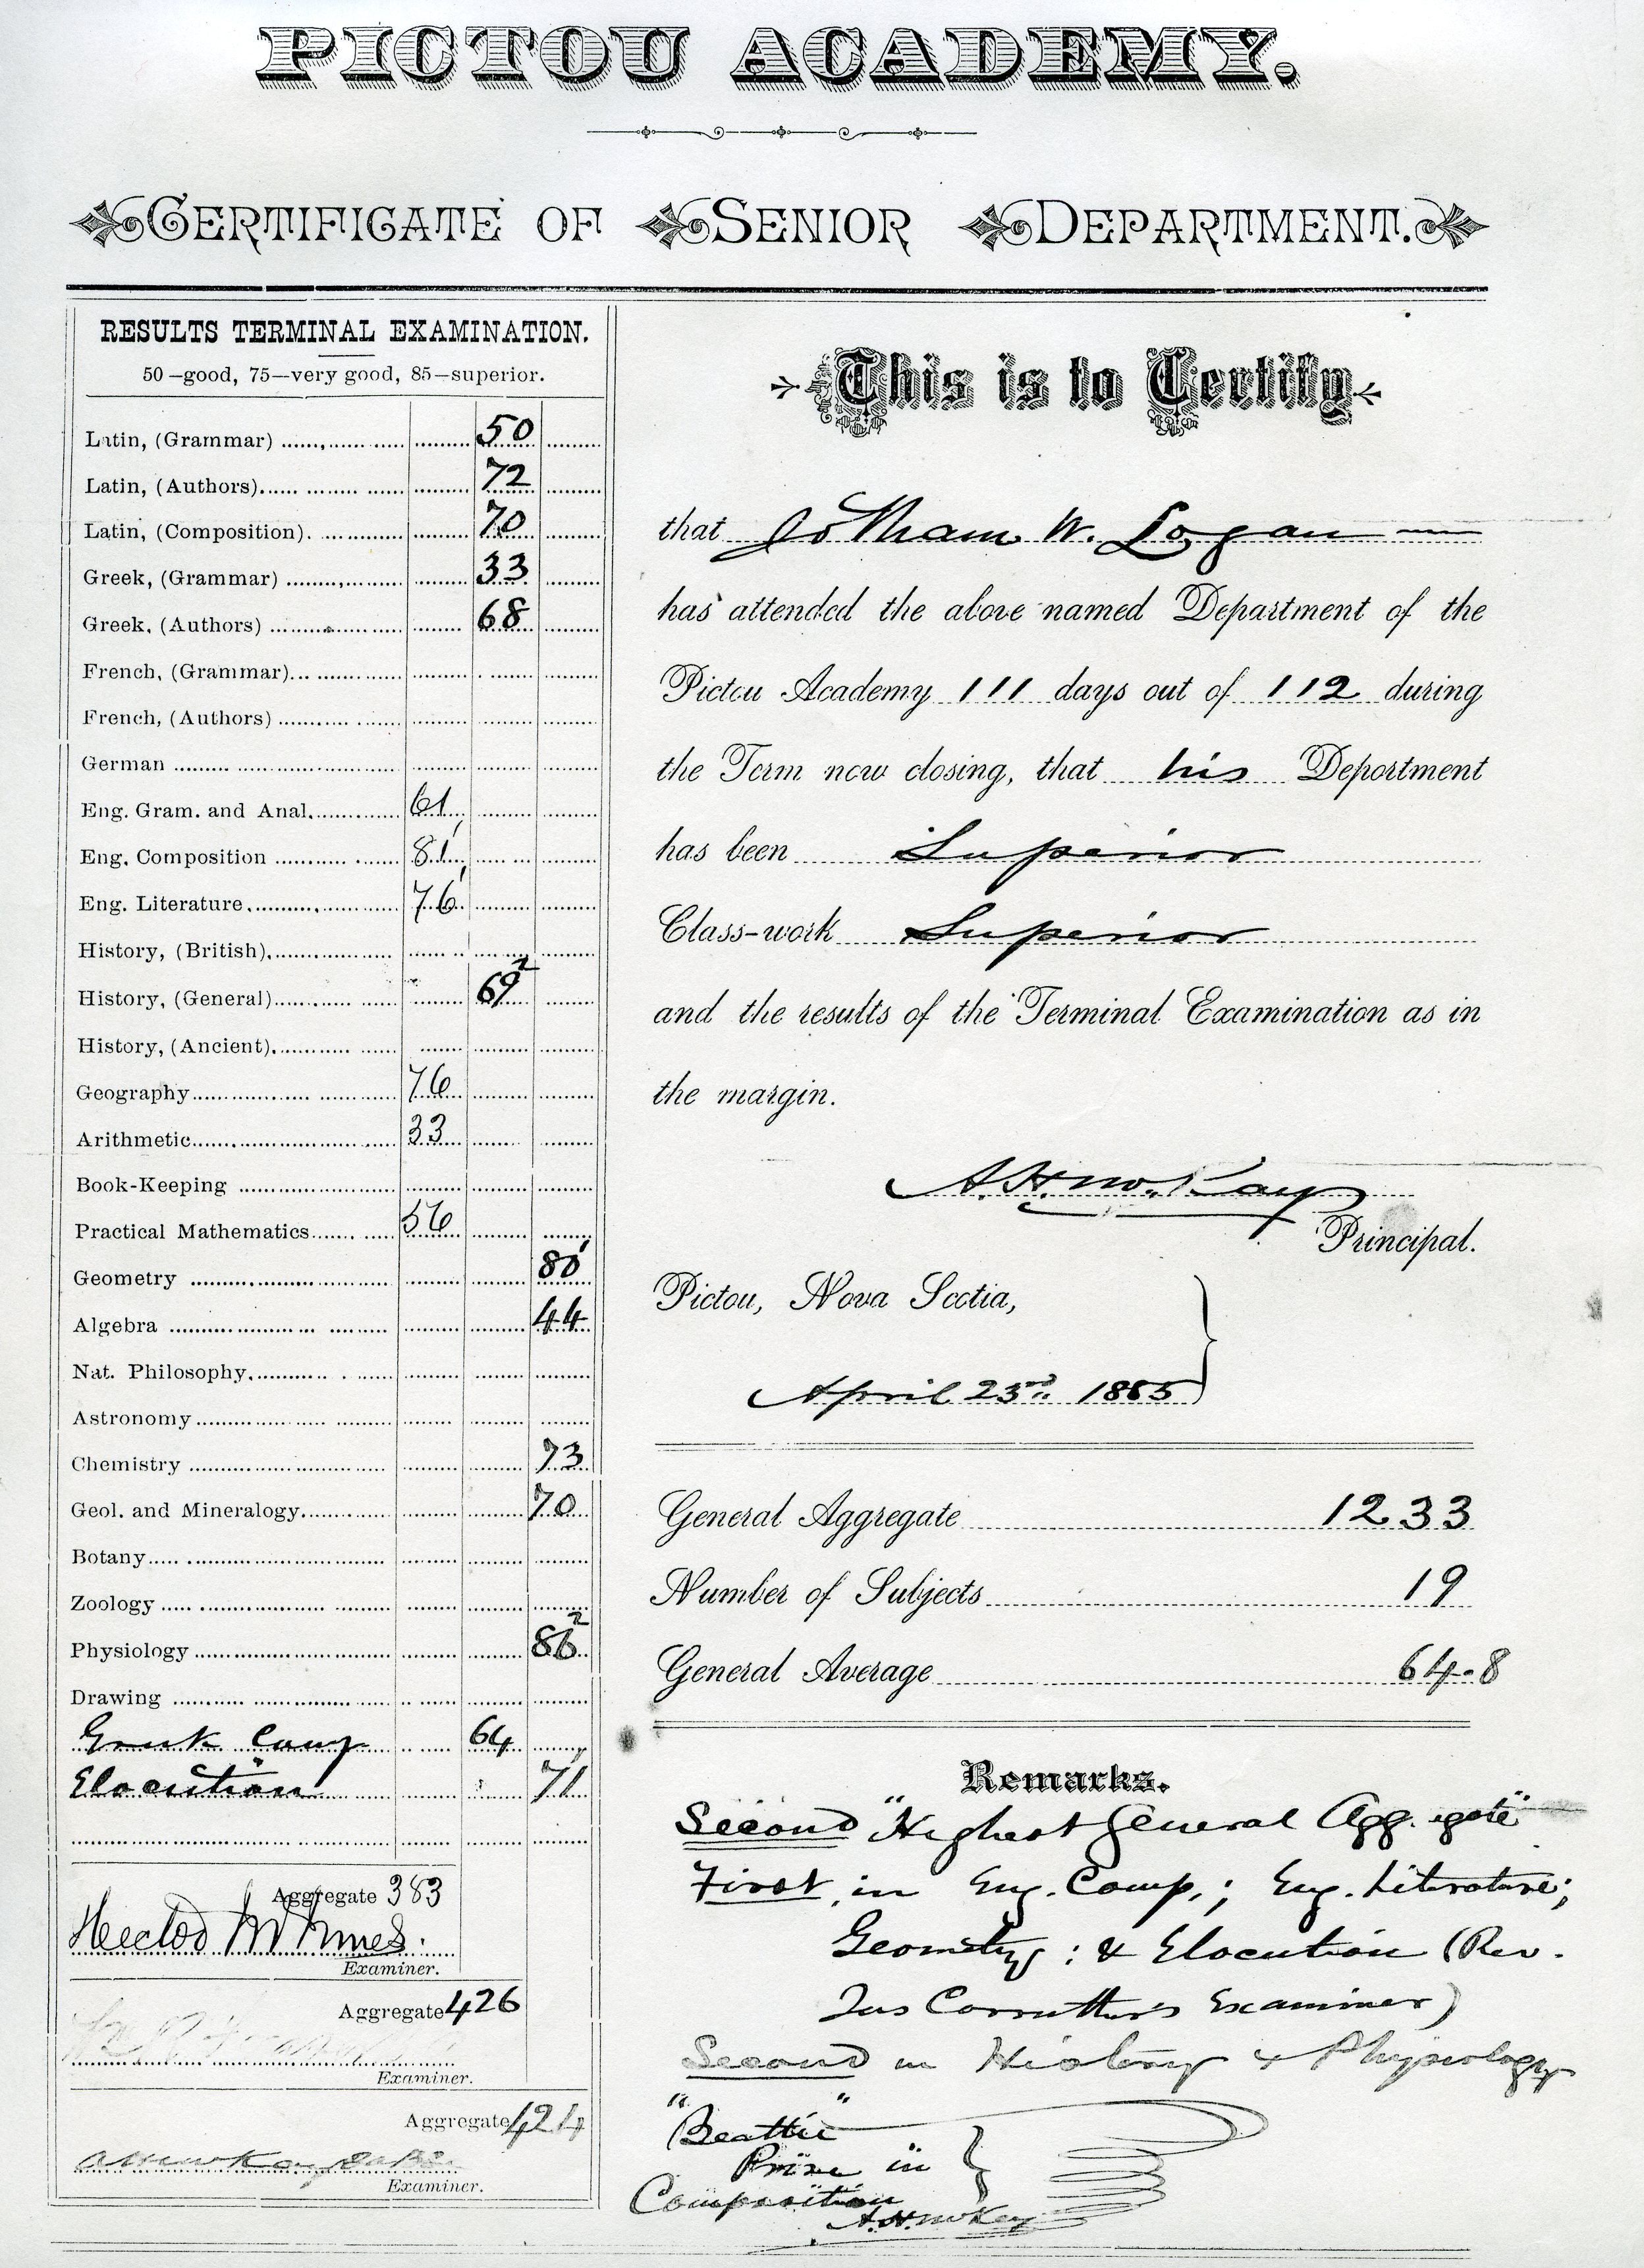 PICTOU ACADEMY.
CERTIFICATE OF SENIOR DEPARTMENT.
RESULTS TERMINAL EXAMINATION.
50—good, 75—very good, 85—superior.
Latin, (Grammar) 50
Latin, (Authors) 72
Latin, (Composition) 70
Greek, (Grammar) 33
Greek, (Authors) 68
French, (Grammar)
French, (Authors)
German
Eng. Gram. and Anal. 61
Eng. Composition 81 1
Eng. Literature 76 1
History, (British)
History, (General) 69 2
History, (Ancient)
Geography 76
Arithmetic 33
Book-Keeping
Practical Mathematics 56
Geometry 80 1
Algebra 44
Nat. Philosophy
Astronomy
Chemistry 73
Geol. and Mineralogy 70
Botany
Zoology
Physiology 86 2
Drawing
Greek Comp 64
Elocution 71 1
Aggregate 383
Hector
Examiner.
Aggregate 426
Examiner.
Aggregate 424
A H McKay
Examiner.
This is to Certify
that Jotham W. Logan
has attended the above named Department of the
Pictou Academy 111 days out of 112 during
the Term now closing, that his Deportment
has been Superior
Class-work Superior
and the results of the Terminal Examination as in
the margin.
A. H. McKay
Principal.
Pictou, Nova Scotia,
April 23rd 1885
General Aggregate 1233
Number of Subjects 19
General Average 64.8
Remarks.
Second "Highest General Aggregate"
First in Eng. Comp.; Eng. Literature;
Geometry; & Elocution (Rev.
Jas Carruthers Examiner)
Second in History & Physiology
"Beattie"
Prize in
Composition
A. H. McKay